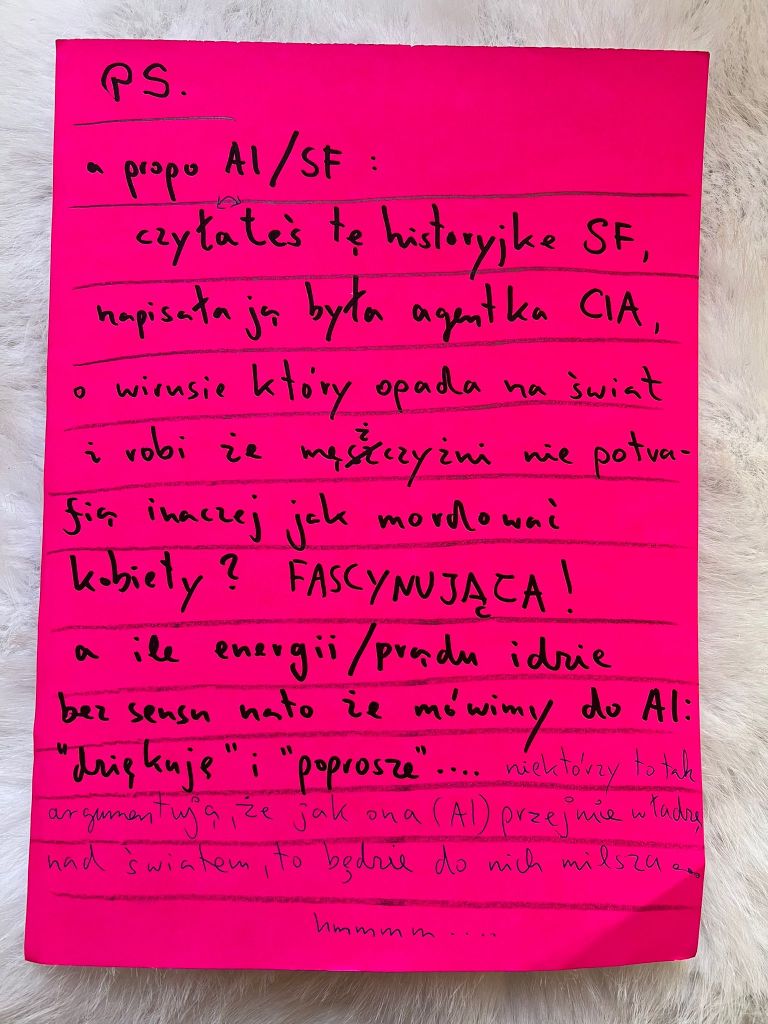 PS.
a propo AI/SF :
czytałeś tę historyjkę SF,
napisała ją była agentka CIA,
o wirusie który opada na świat
i robi że mężczyźni nie potra-
fią inaczej jak mordować
kobiety? FASCYNUJĄCA!
a ile energii/prądu idzie
bez sensu na to że mówimy do AI:
"dziękuję" i "poproszę".... niektórzy to tak
argumentują, że jak ona (AI) przejmie władzę
nad światem, to będzie do nich milsza...
hmmmm....